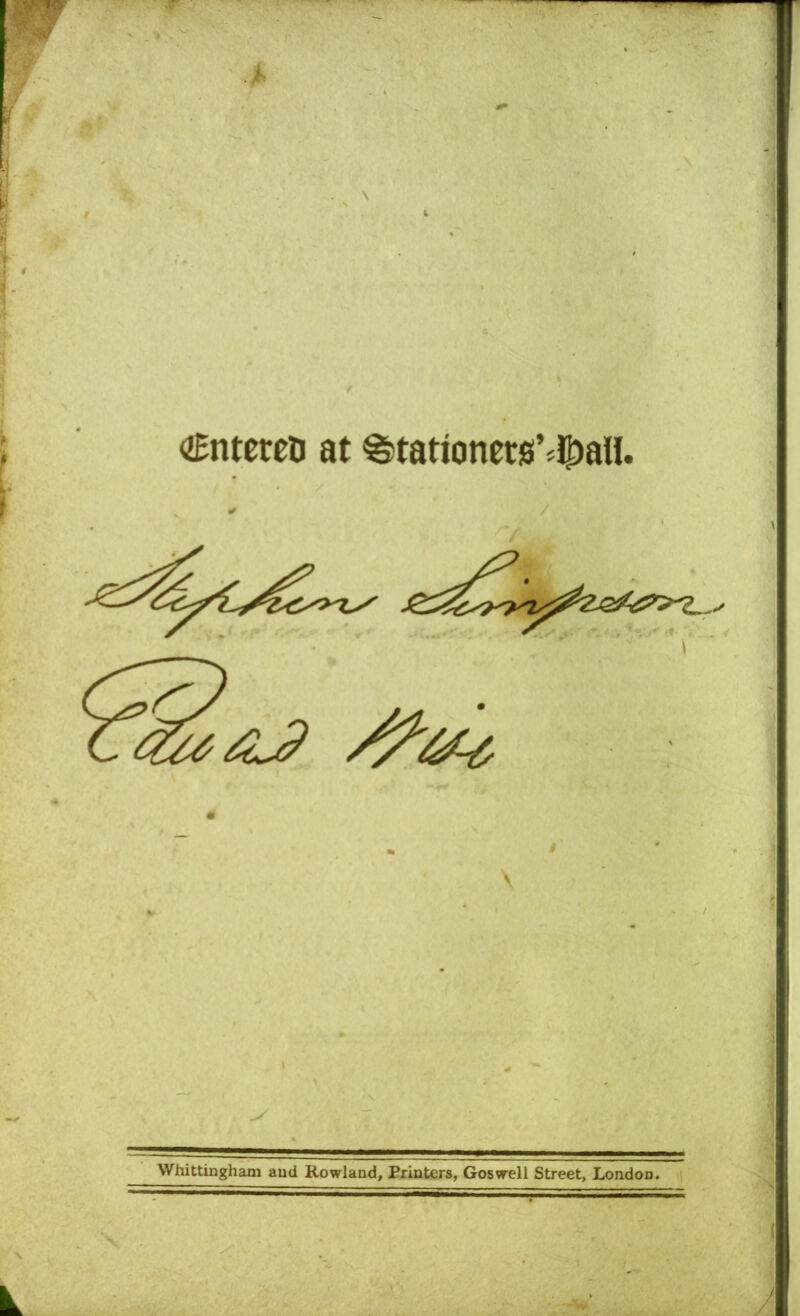 Entered at Stationers'-Hall.
Stephen Simpson
Whittingham and Rowland, Printers, Goswell Street, London.